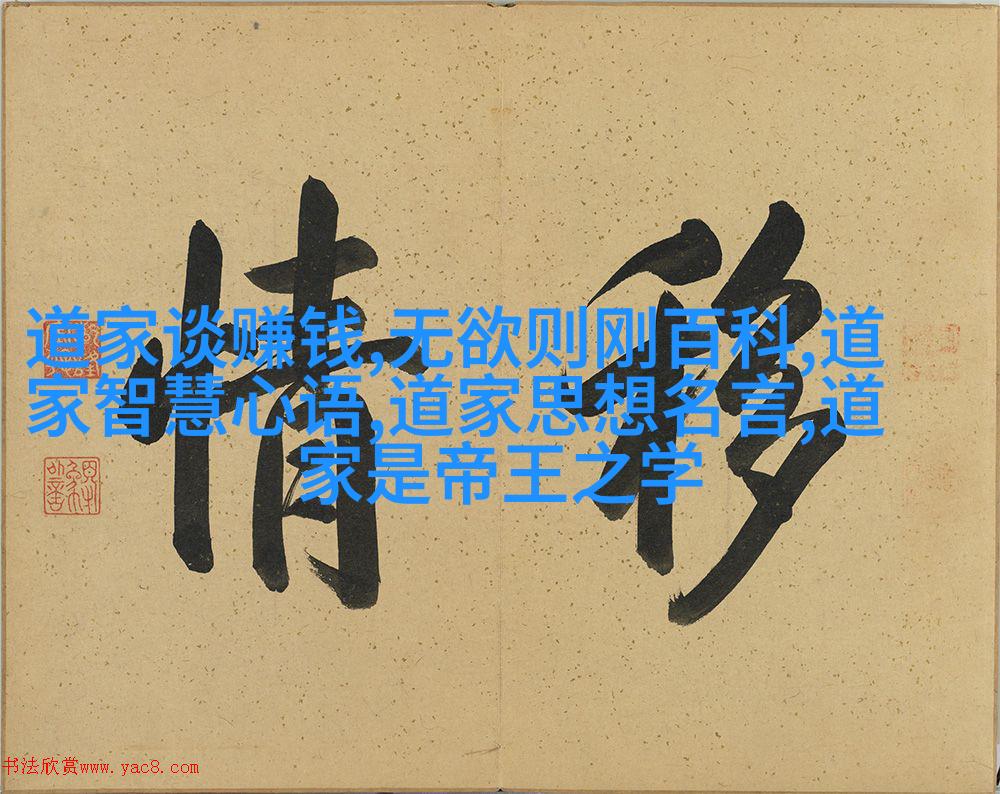 移情
道家谈赚钱,无欲则刚百科,道
家智慧心语,道家思想名言,道
家是帝王之学
书法欣赏www.yac8.com